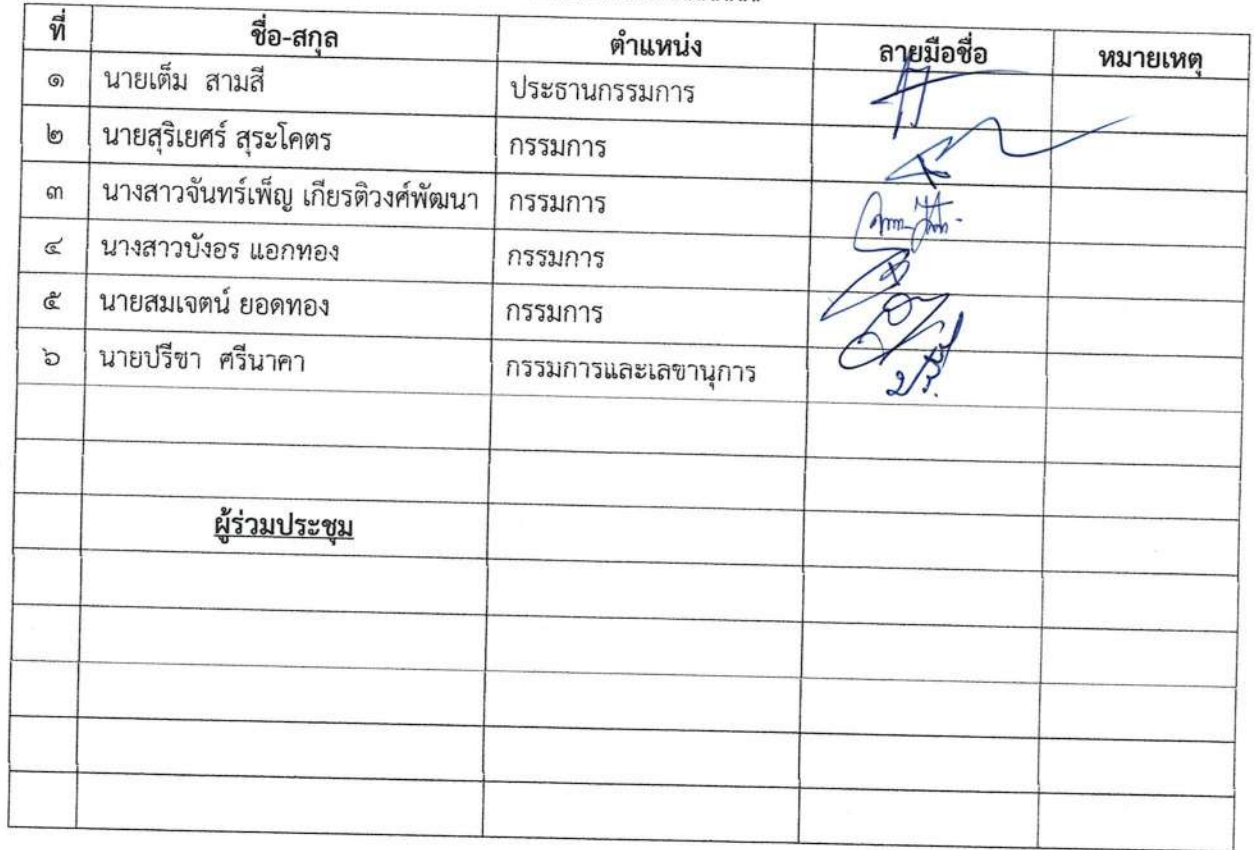 ที่ ชื่อ-สกุล ตำแหน่ง ลายมือชื่อ หมายเหตุ
๑ นายเต็ม สามสี ประธานกรรมการ
๒ นายสุริเยศร์ สุระโคตร กรรมการ
๓ นางสาวจันทร์เพ็ญ เกียรติวงศ์พัฒนา กรรมการ
๔ นางสาวบังอร แอกทอง กรรมการ
๕ นายสมเจตน์ ยอดทอง กรรมการ
๖ นายปรีชา ศรีนาคา กรรมการและเลขานุการ
ผู้ร่วมประชุม